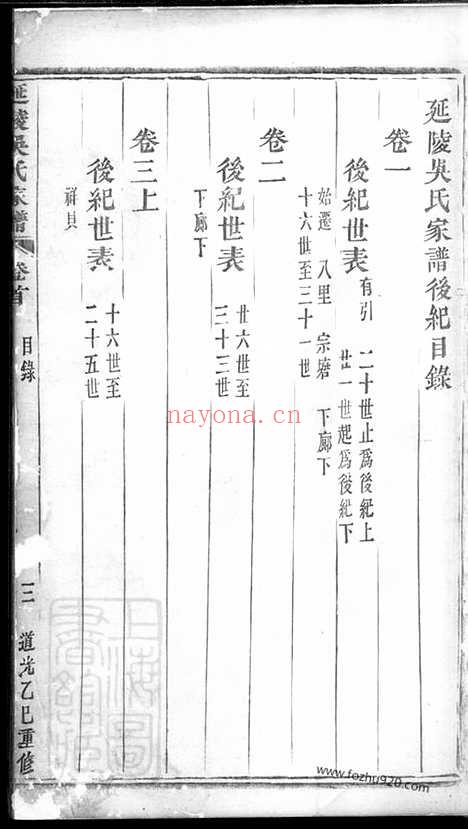 延陵吳氏家譜後紀目錄
卷一
後紀世表 有引 二十世止爲後紀上
廿一世起爲後紀下
始遷 八里 宗塘 下廊下
十六世至三十一世
卷二
後紀世表 廿六世至
三十三世
下廊下
卷三上
後紀世表 十六世至
二十五世
祥貝
延陵吳氏家譜 卷首 目錄 三 道光乙巳重修
nayona.cn
www.fozhu920.com